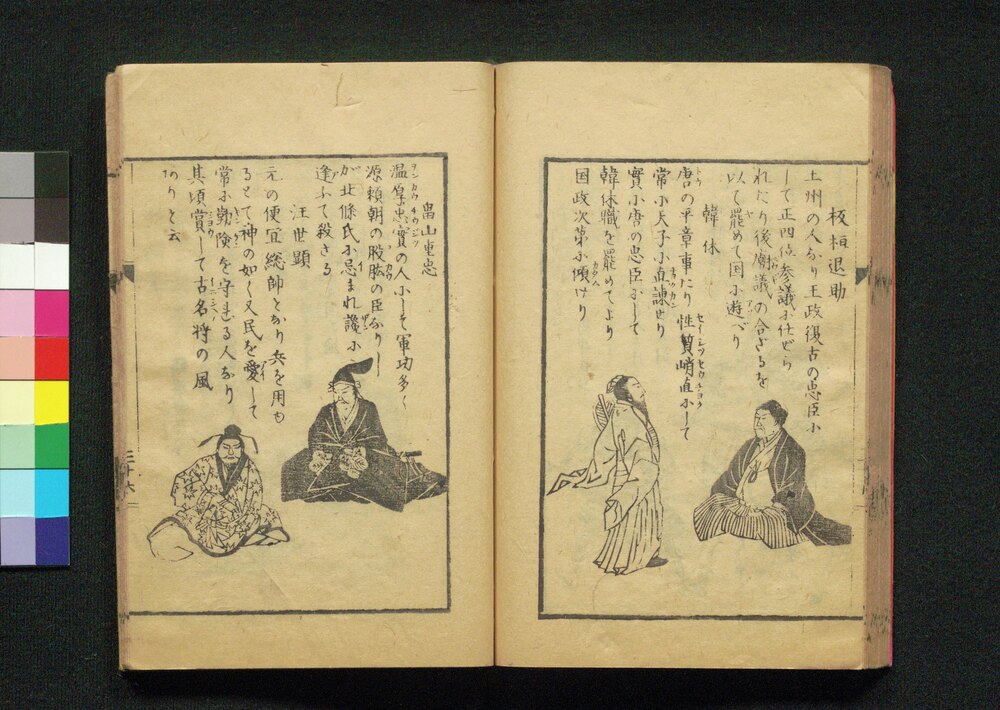 板垣退助
土州の人なり王政復古の忠臣小
して正四位参議小仕ぜら
れたり後廟議の合ざるを
以て罷めて国小遊べり
韓休
唐の平章事たり性質峭直小して
常小天子小直諌せり
實小唐の忠臣にして
韓休職を罷めてより
国政次第小傾けり
畠山重忠
温厚忠實の人小して軍功多く
源頼朝の股肱の臣なりし
が北條氏小忌まれ讒小
逢ふて殺さる
汪世顕
元の便宜総師となり兵を用ゆ
ること神の如く又民を愛して
常小勤倹を守れる人なり
其頃賞して古名将の風
ありと云
三十六